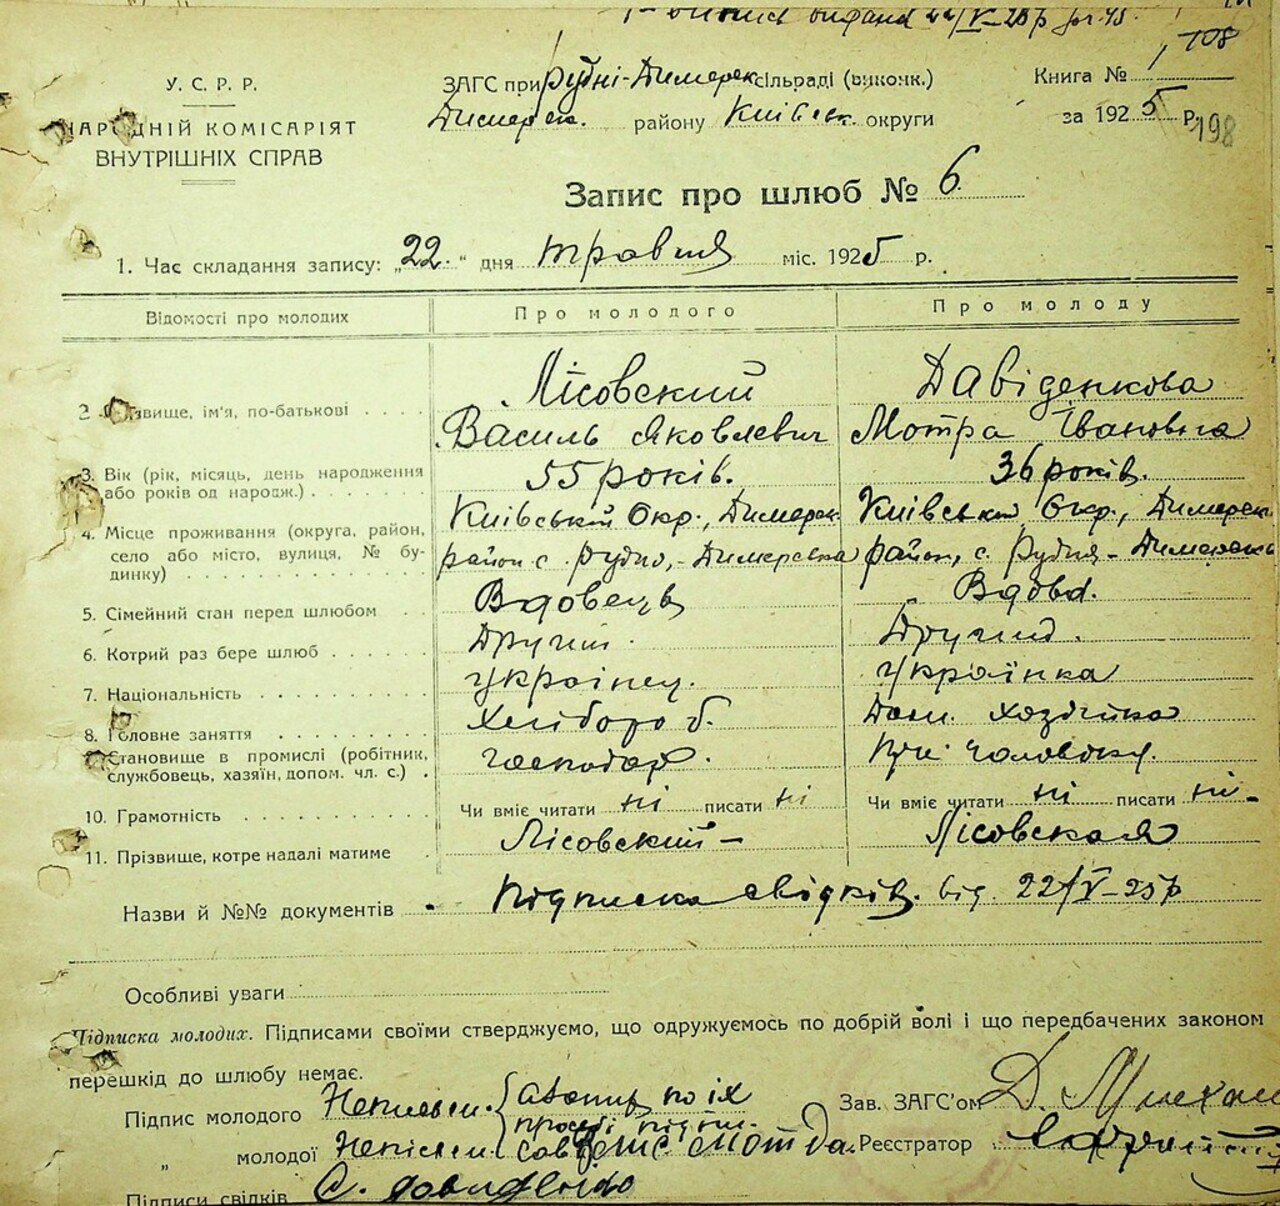 1-а виписа видана 22/V-25р
108
У. С. Р. Р.
НАРОДНІЙ КОМІСАРІЯТ
ВНУТРІШНІХ СПРАВ
ЗАГС при Рудні-Димерек сільраді (виконк.)
Димерск. району Київськ. округи
Книга № 1
за 1925 р.
198
Запис про шлюб № 6
1. Час складання запису: „22" дня травня міс. 1925 р.
Відомості про молодих Про молодого Про молоду
2. Прізвище, ім'я, по-батькові
Лісовский Давіденкова
Василь Яковлевич Мотра Івановна
3. Вік (рік, місяць, день народження або років од народж.) 55 років. 36 років.
4. Місце проживання (округа, район, село або місто, вулиця, № будинку)
Київський Окр., Димерск. Київський Окр., Димерск
район с. Рудня-Димерська район, с. Рудня-Димерська
5. Сімейний стан перед шлюбом Вдовець Вдова.
6. Котрий раз бере шлюб Другий. Другий.
7. Національність українец. українка
8. Головне заняття Хлібороб. Дом. хазяйка
9. Становище в промислі (робітник, службовець, хазяїн, допом. чл. с.) господар. При чоловікі.
10. Грамотність Чи вміє читати ні писати ні Чи вміє читати ні писати ні
11. Прізвище, котре надалі матиме Лісовский Лісовская
Назви й №№ документів Підписка свідків. від. 22/V-25р
Особливі уваги
Підписка молодих. Підписами своїми стверджуємо, що одружуємось по добрій волі і що передбачених законом
перешкід до шлюбу немає.
Підпис молодого Неписьм. а за них по їх
прозьбі підпи-
„ молодої Неписьм.
Підписи свідків
Зав. ЗАГС'ом
Реєстратор